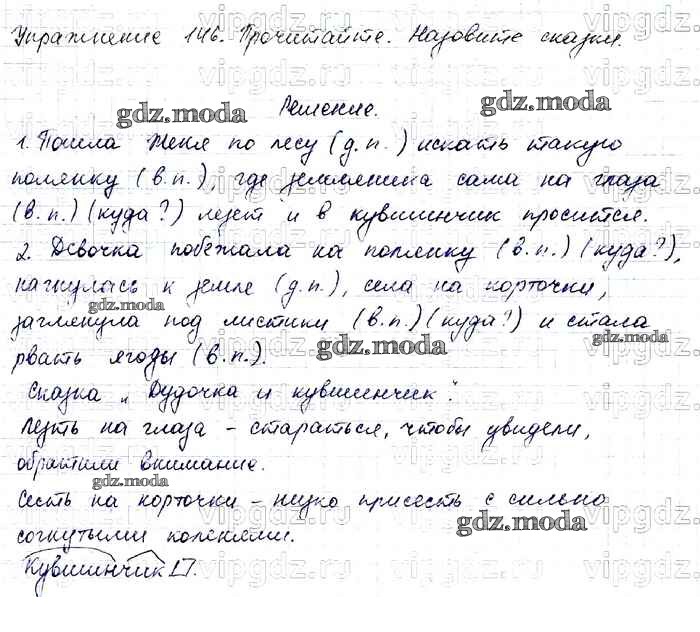 Упражнение 146. Прочитайте. Назовите сказки.
Решение.
1. Пошла Женя по лесу (д.п.) искать такую
полянку (в.п.), где земляника сама на глаза
(в.п.) (куда?) лезет и в кувшинчик просится.
2. Девочка побежала на полянку (в.п.) (куда?),
нагнулась к земле (д.п.), села на корточки,
заглянула под листики (в.п.) (куда?) и стала
рвать ягоды (в.п.).
Сказка „Дудочка и кувшинчик".
Лезть на глаза - стараться, чтобы увидели,
обратили внимание.
Сесть на корточки - низко присесть с сильно
согнутыми коленями.
Кувшинчик
gdz.moda
gdz.moda
gdz.moda
gdz.moda
gdz.moda
gdz.moda
gdz.moda
gdz.moda